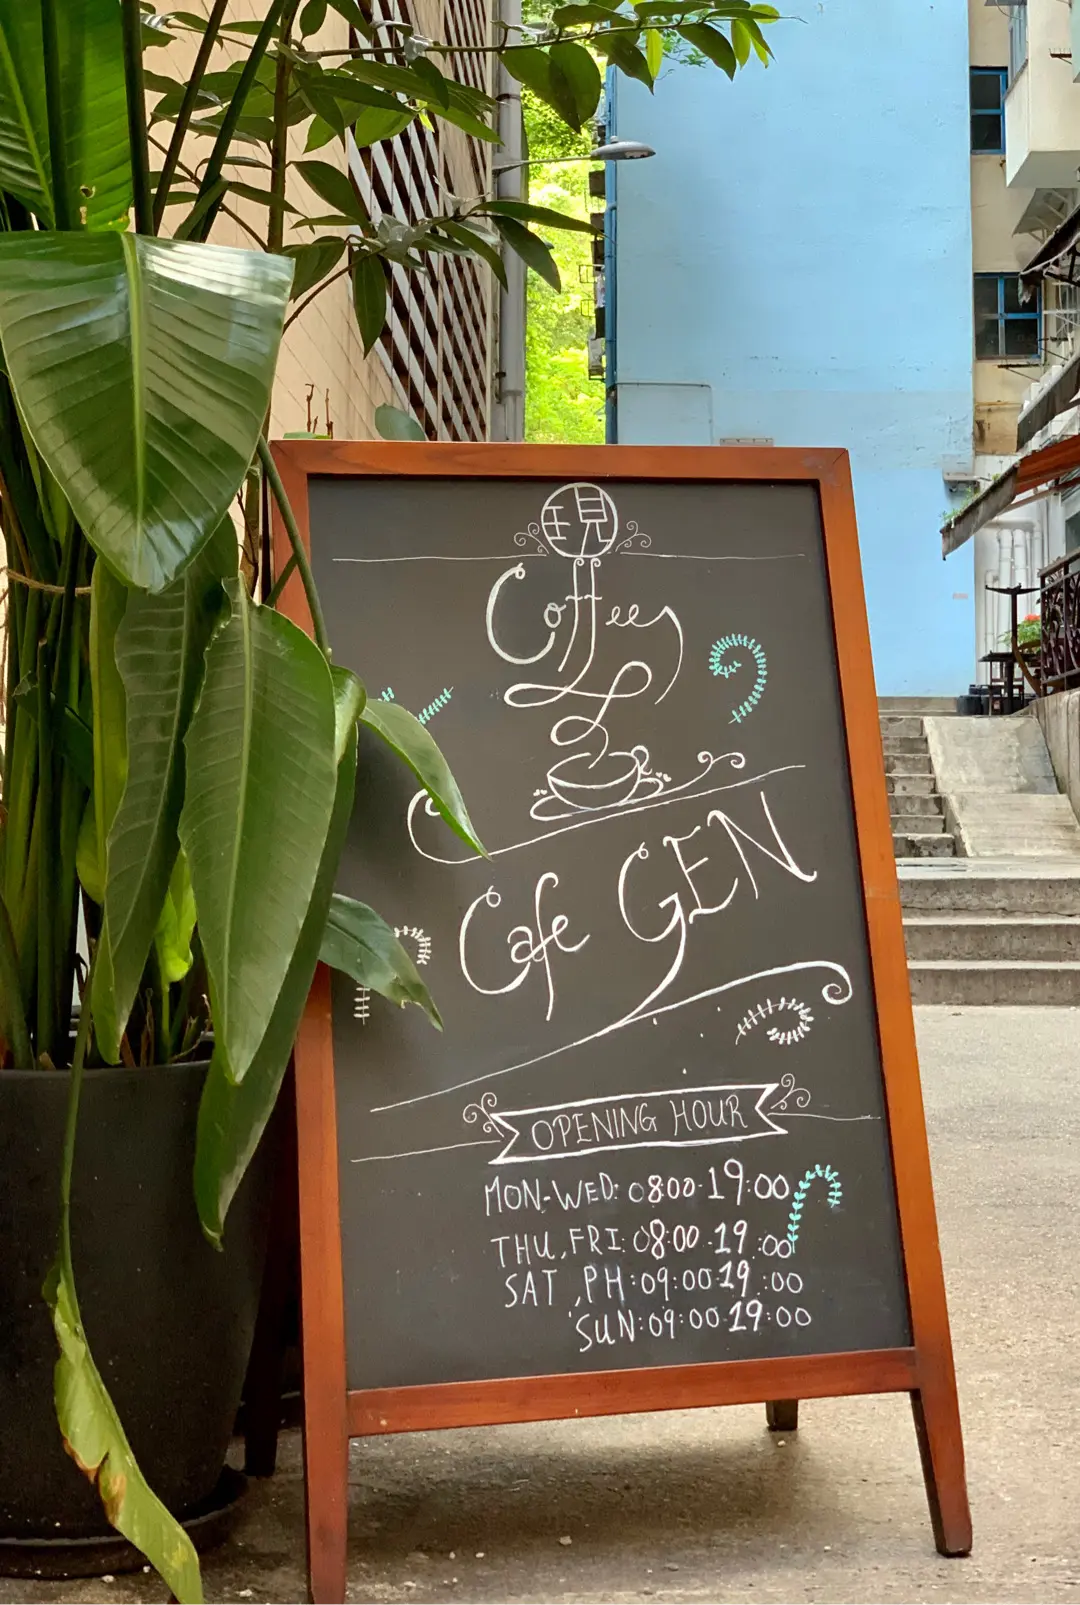 現
Coffee
Cafe GEN
OPENING HOUR
MON-WED: 08:00-19:00
THU, FRI: 08:00-19:00
SAT, PH: 09:00-19:00
SUN: 09:00-19:00